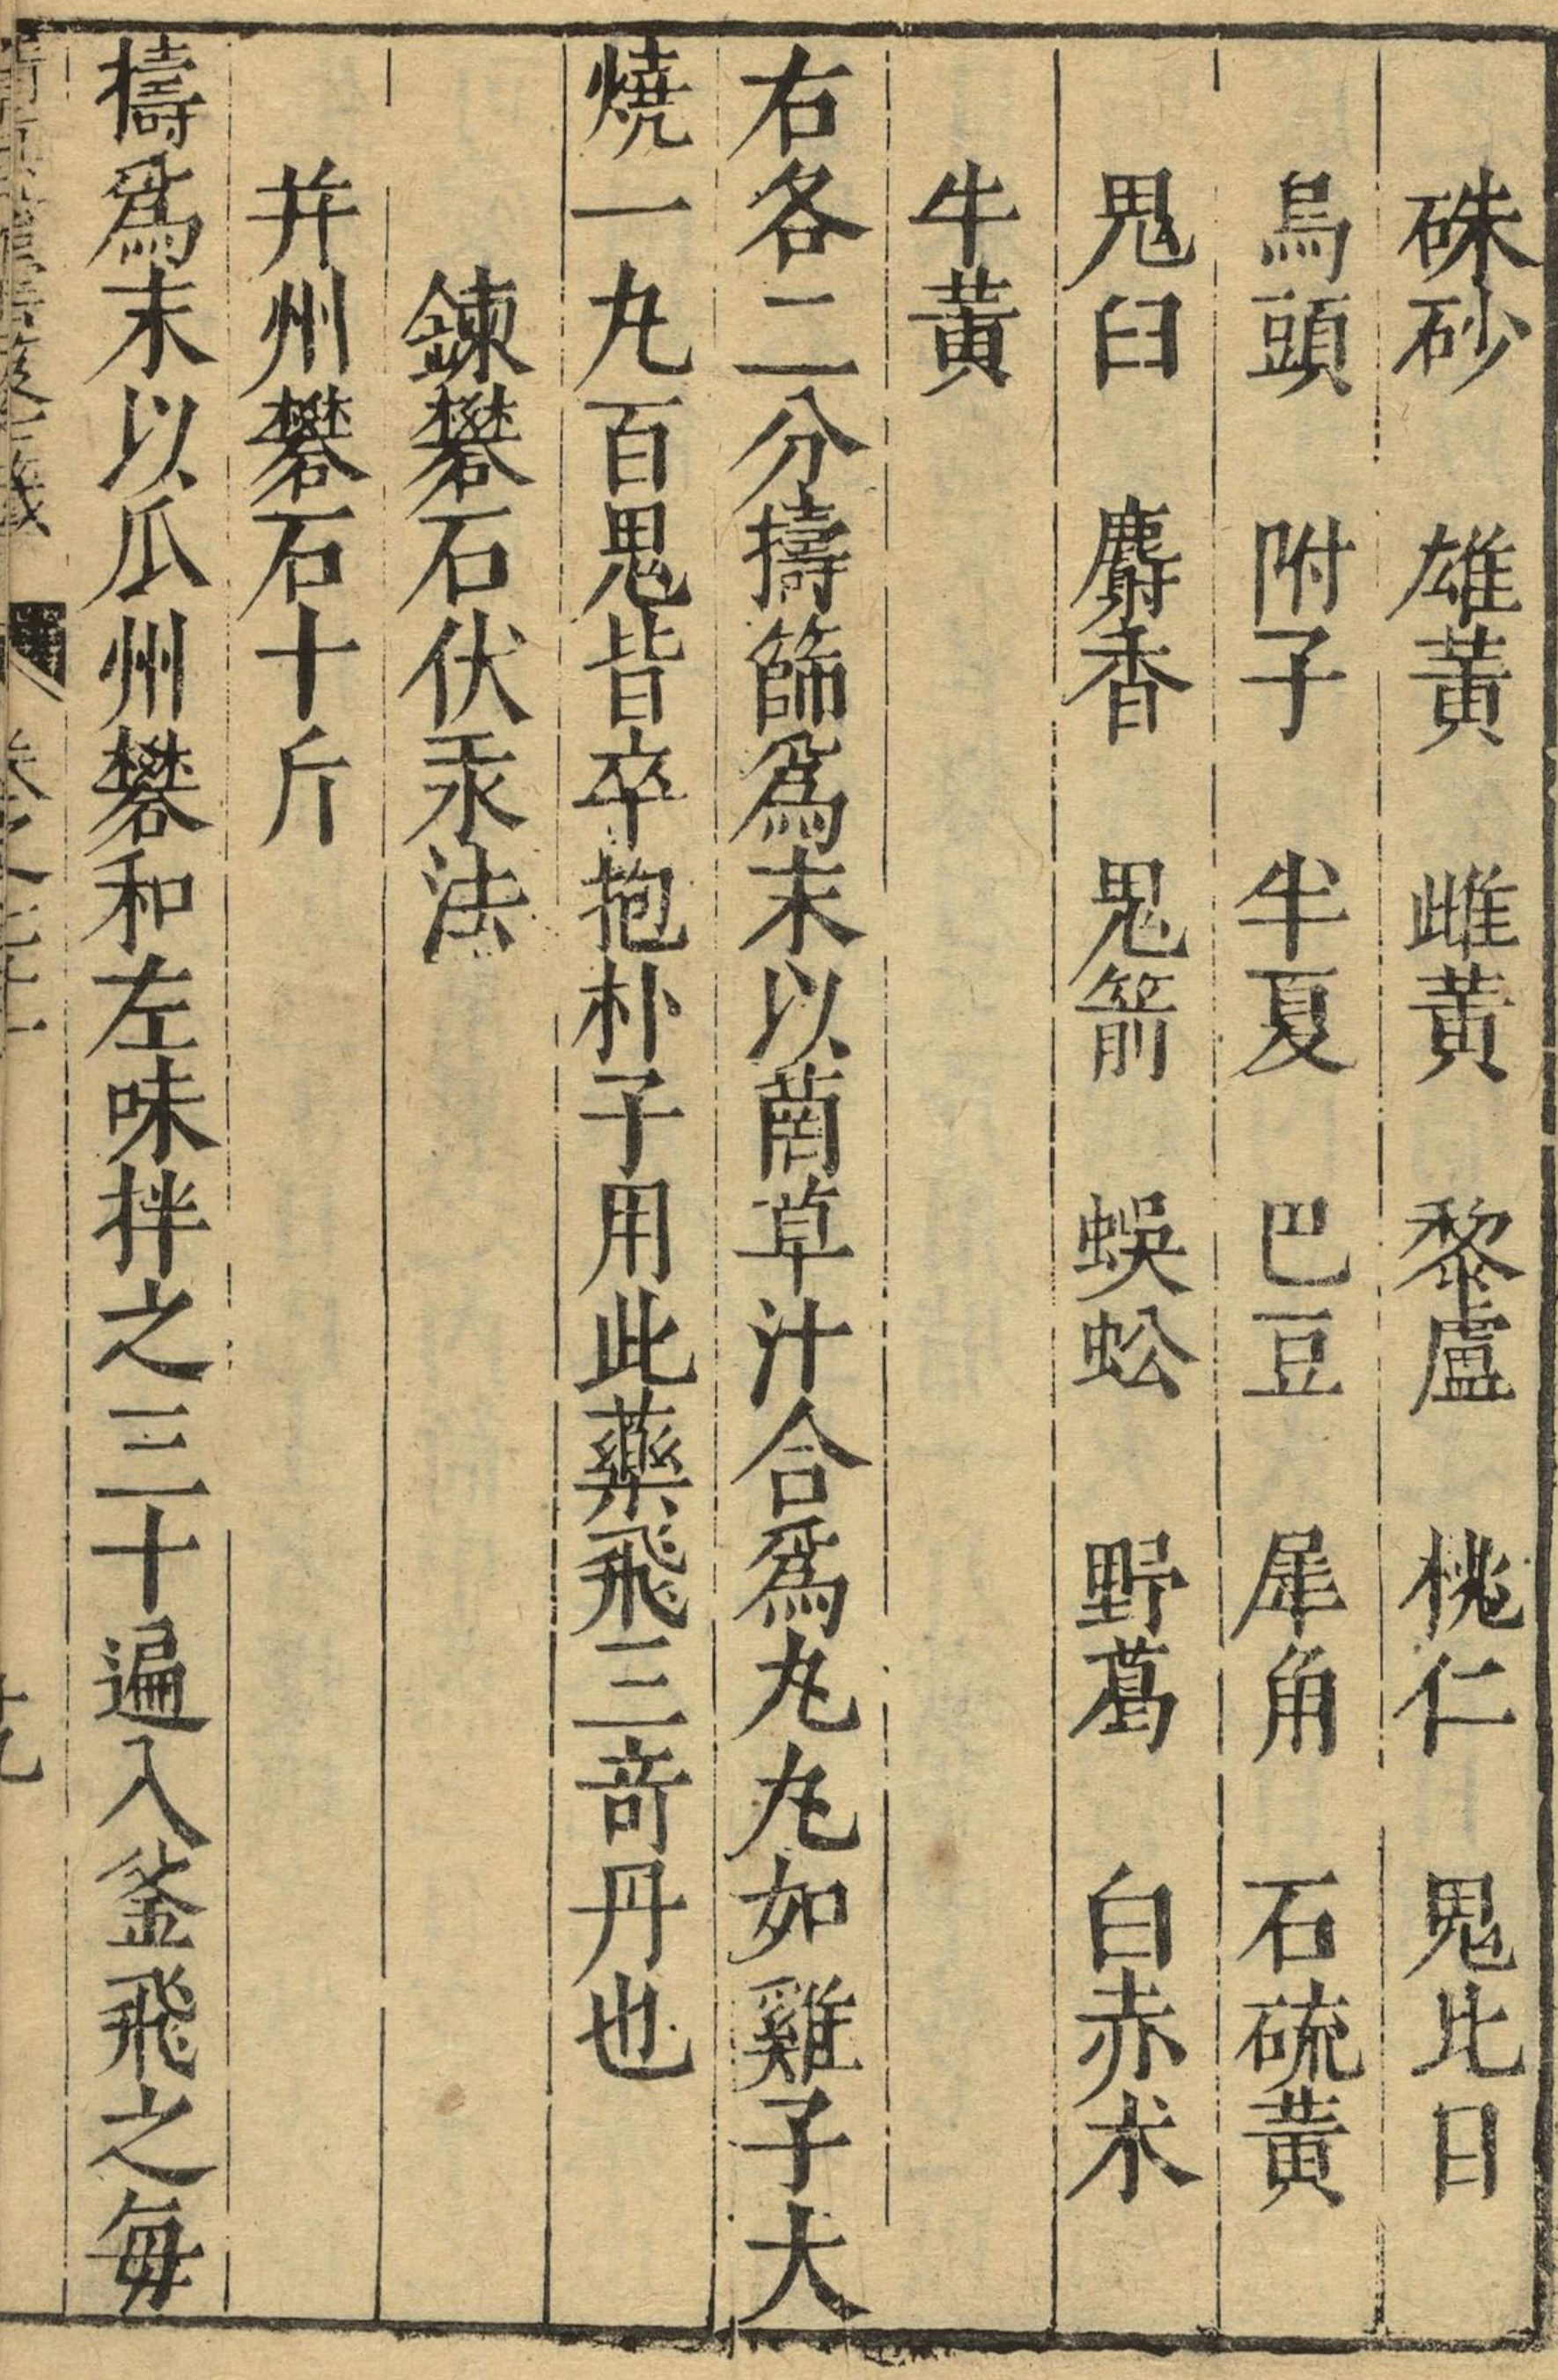 硃砂　雄黃　雌黃　黎盧　桃仁　鬼比日
烏頭　附子　半夏　巴豆　犀角　石硫黃
鬼臼　麝香　鬼箭　蜈蚣　野葛　白赤术
牛黃
右各二分擣篩爲末以菵草汁合爲丸丸如雞子大
燒一丸百鬼皆卒抱朴子用此藥飛三竒丹也
鍊礬石伏汞法
并州礬石十斤
擣爲末以瓜州礬和左味拌之三十遍入釜飛之每